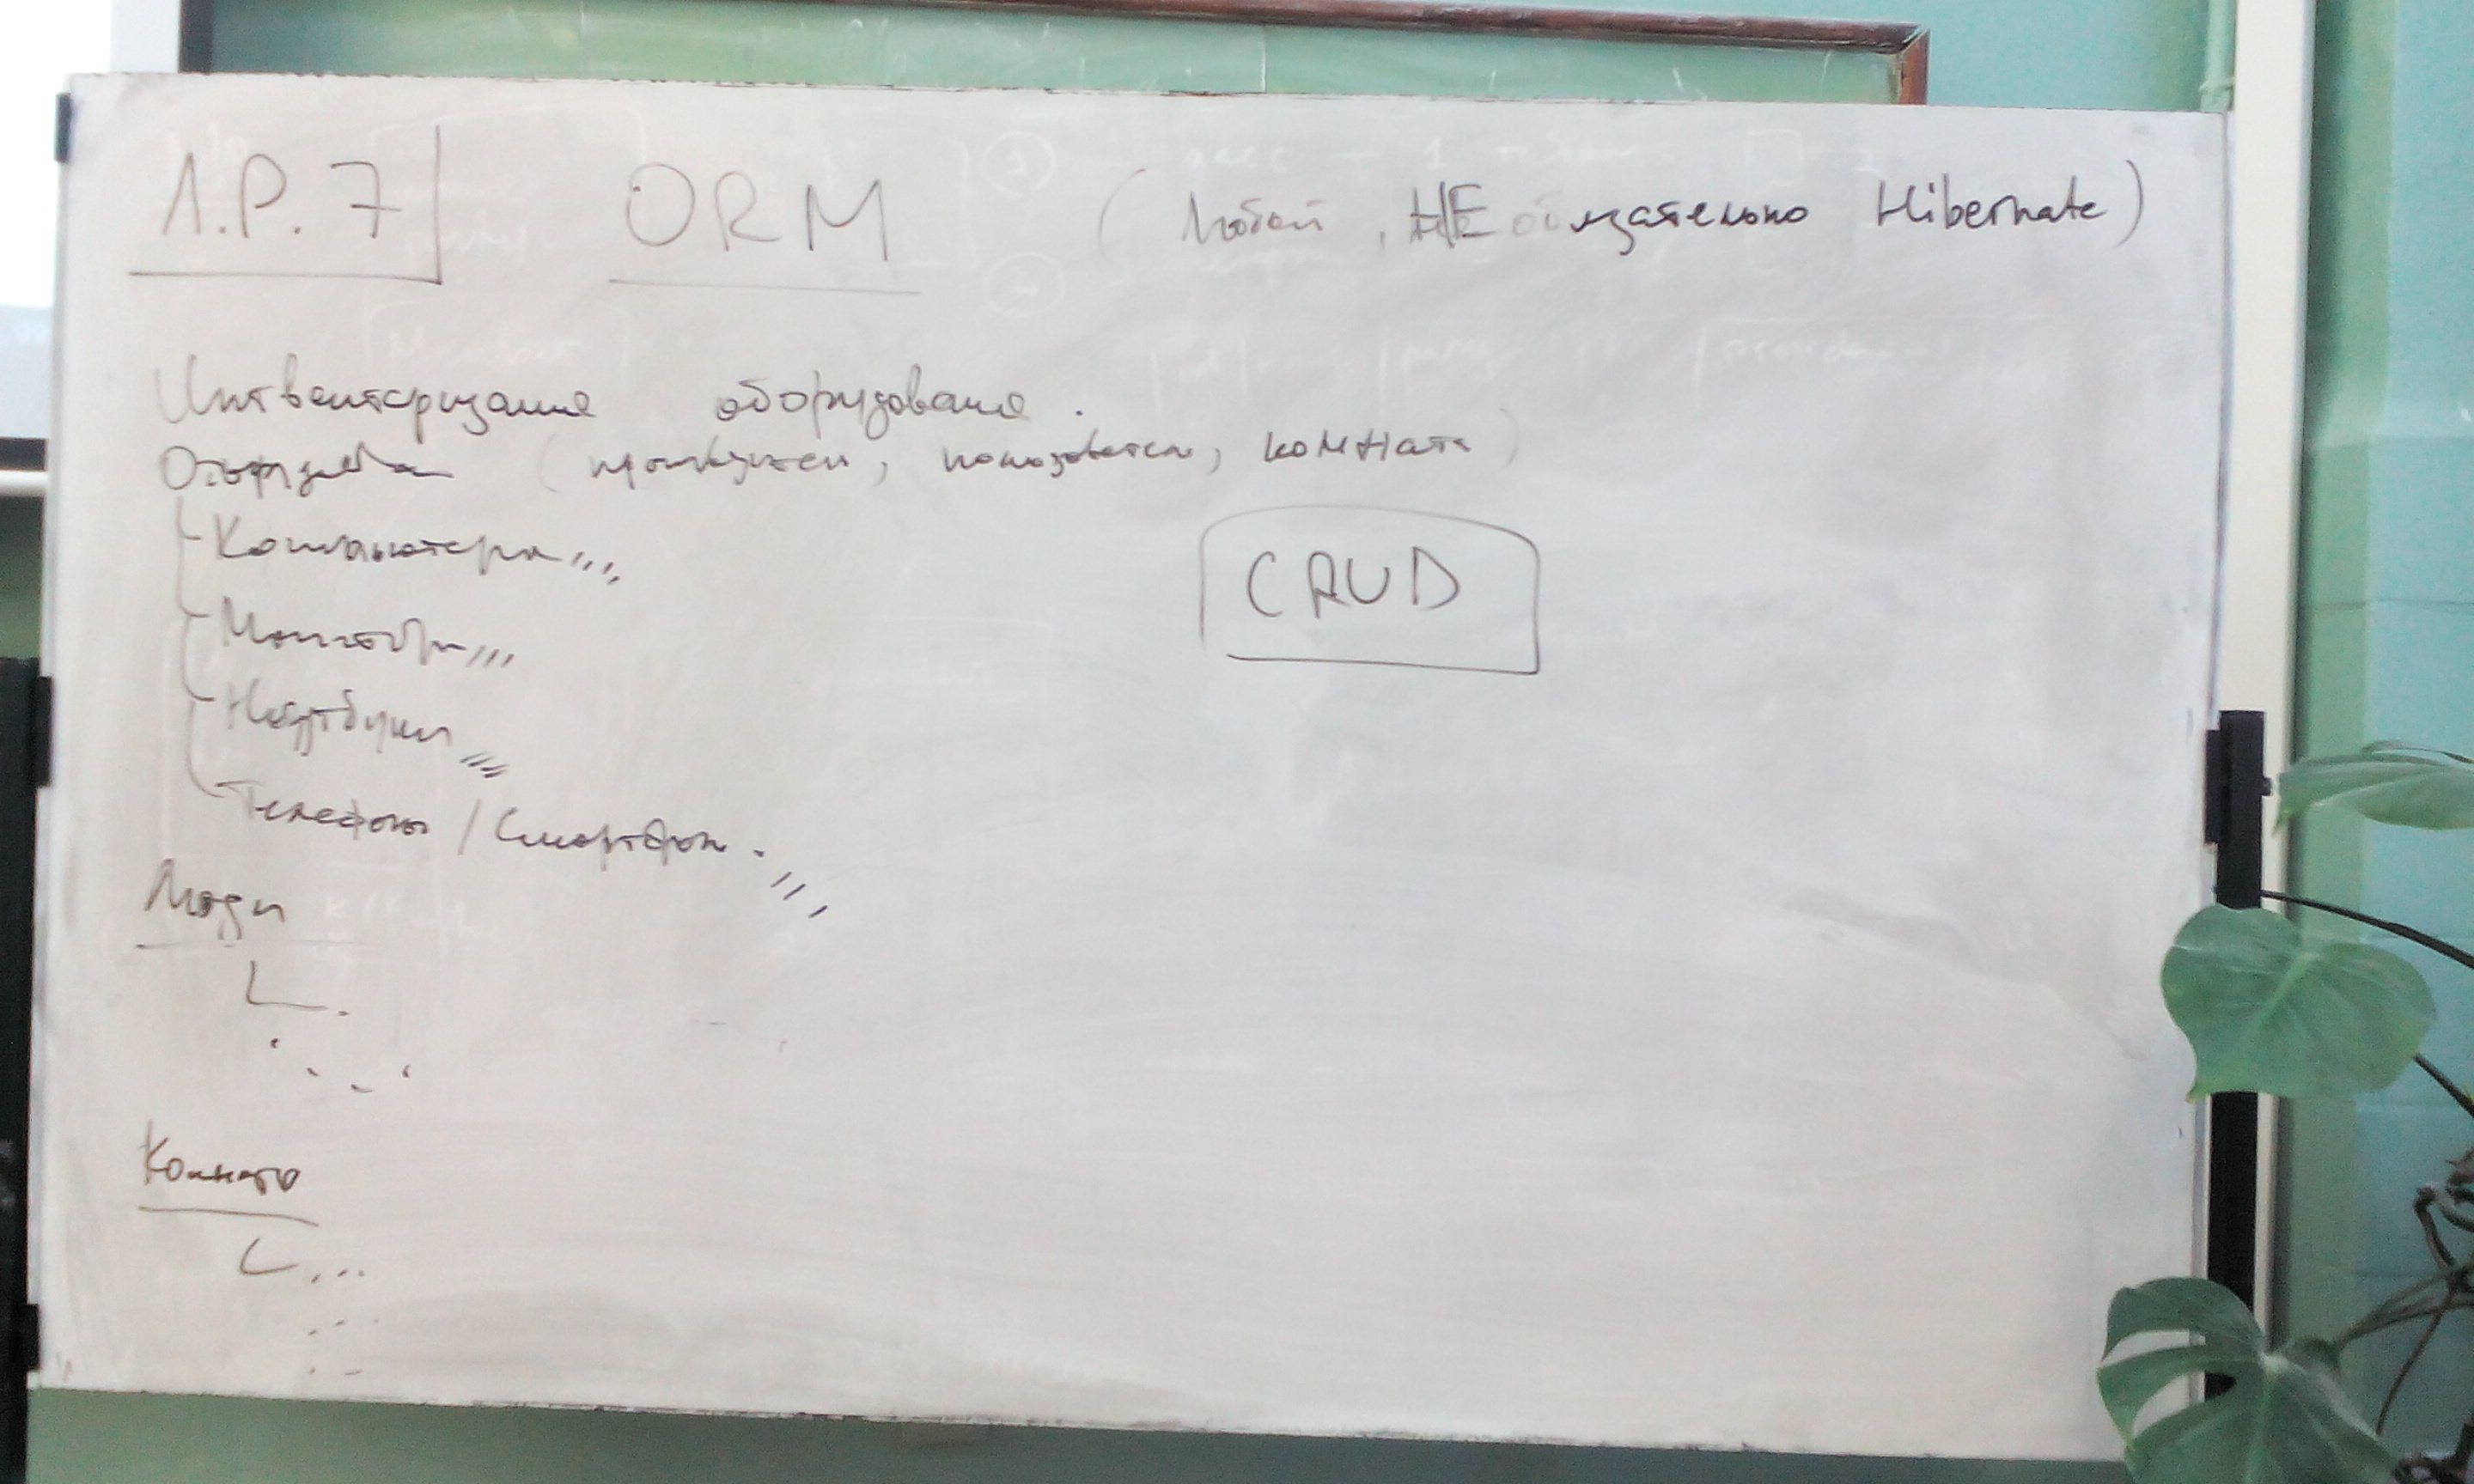 Л.Р. 7 ORM (Любой, НЕ обязательно Hibernate)
Интвентаризация оборудования.
Оборудован (пользователь, комната)
Компьютеры,,,
CRUD
Мониторы,,,
Ноутбуки,,,
Телефоны / Смартфоны.,,,
Люди
Комнаты